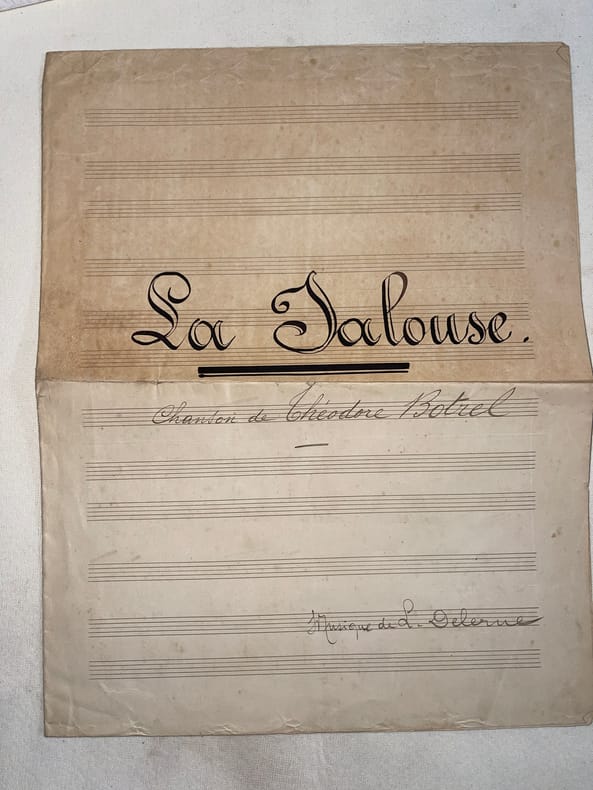 La Jalouse.
Chanson de Théodore Botrel
Musique de L. Delerue